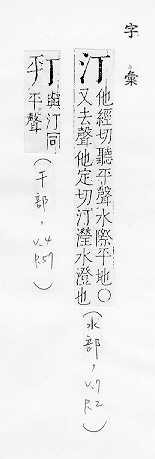 字彙
汀
他經切聽平聲水際平地○
又去聲他定切汀瀅水澄也
(水部, V.7
P.2)
與汀同
平聲
(干部, V.4
P.57)